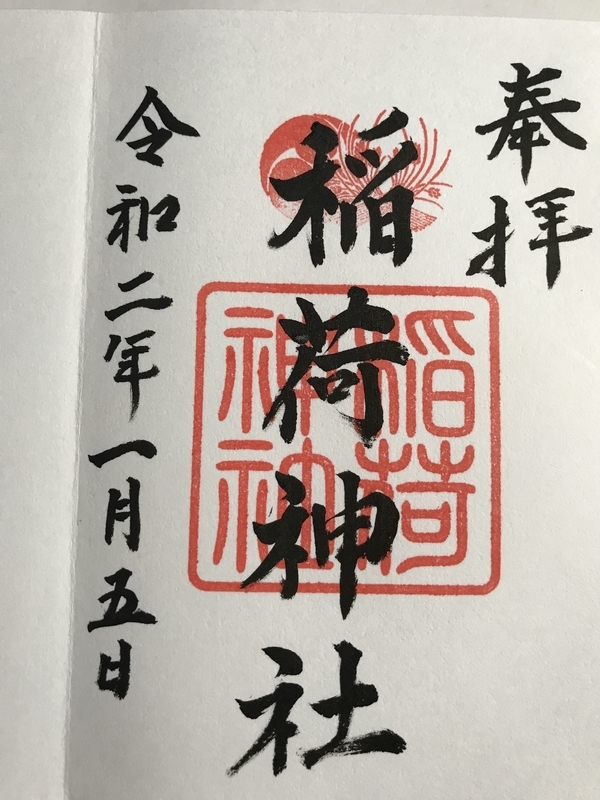 奉拝
稲荷神社
稲荷
神社
令和二年一月五日